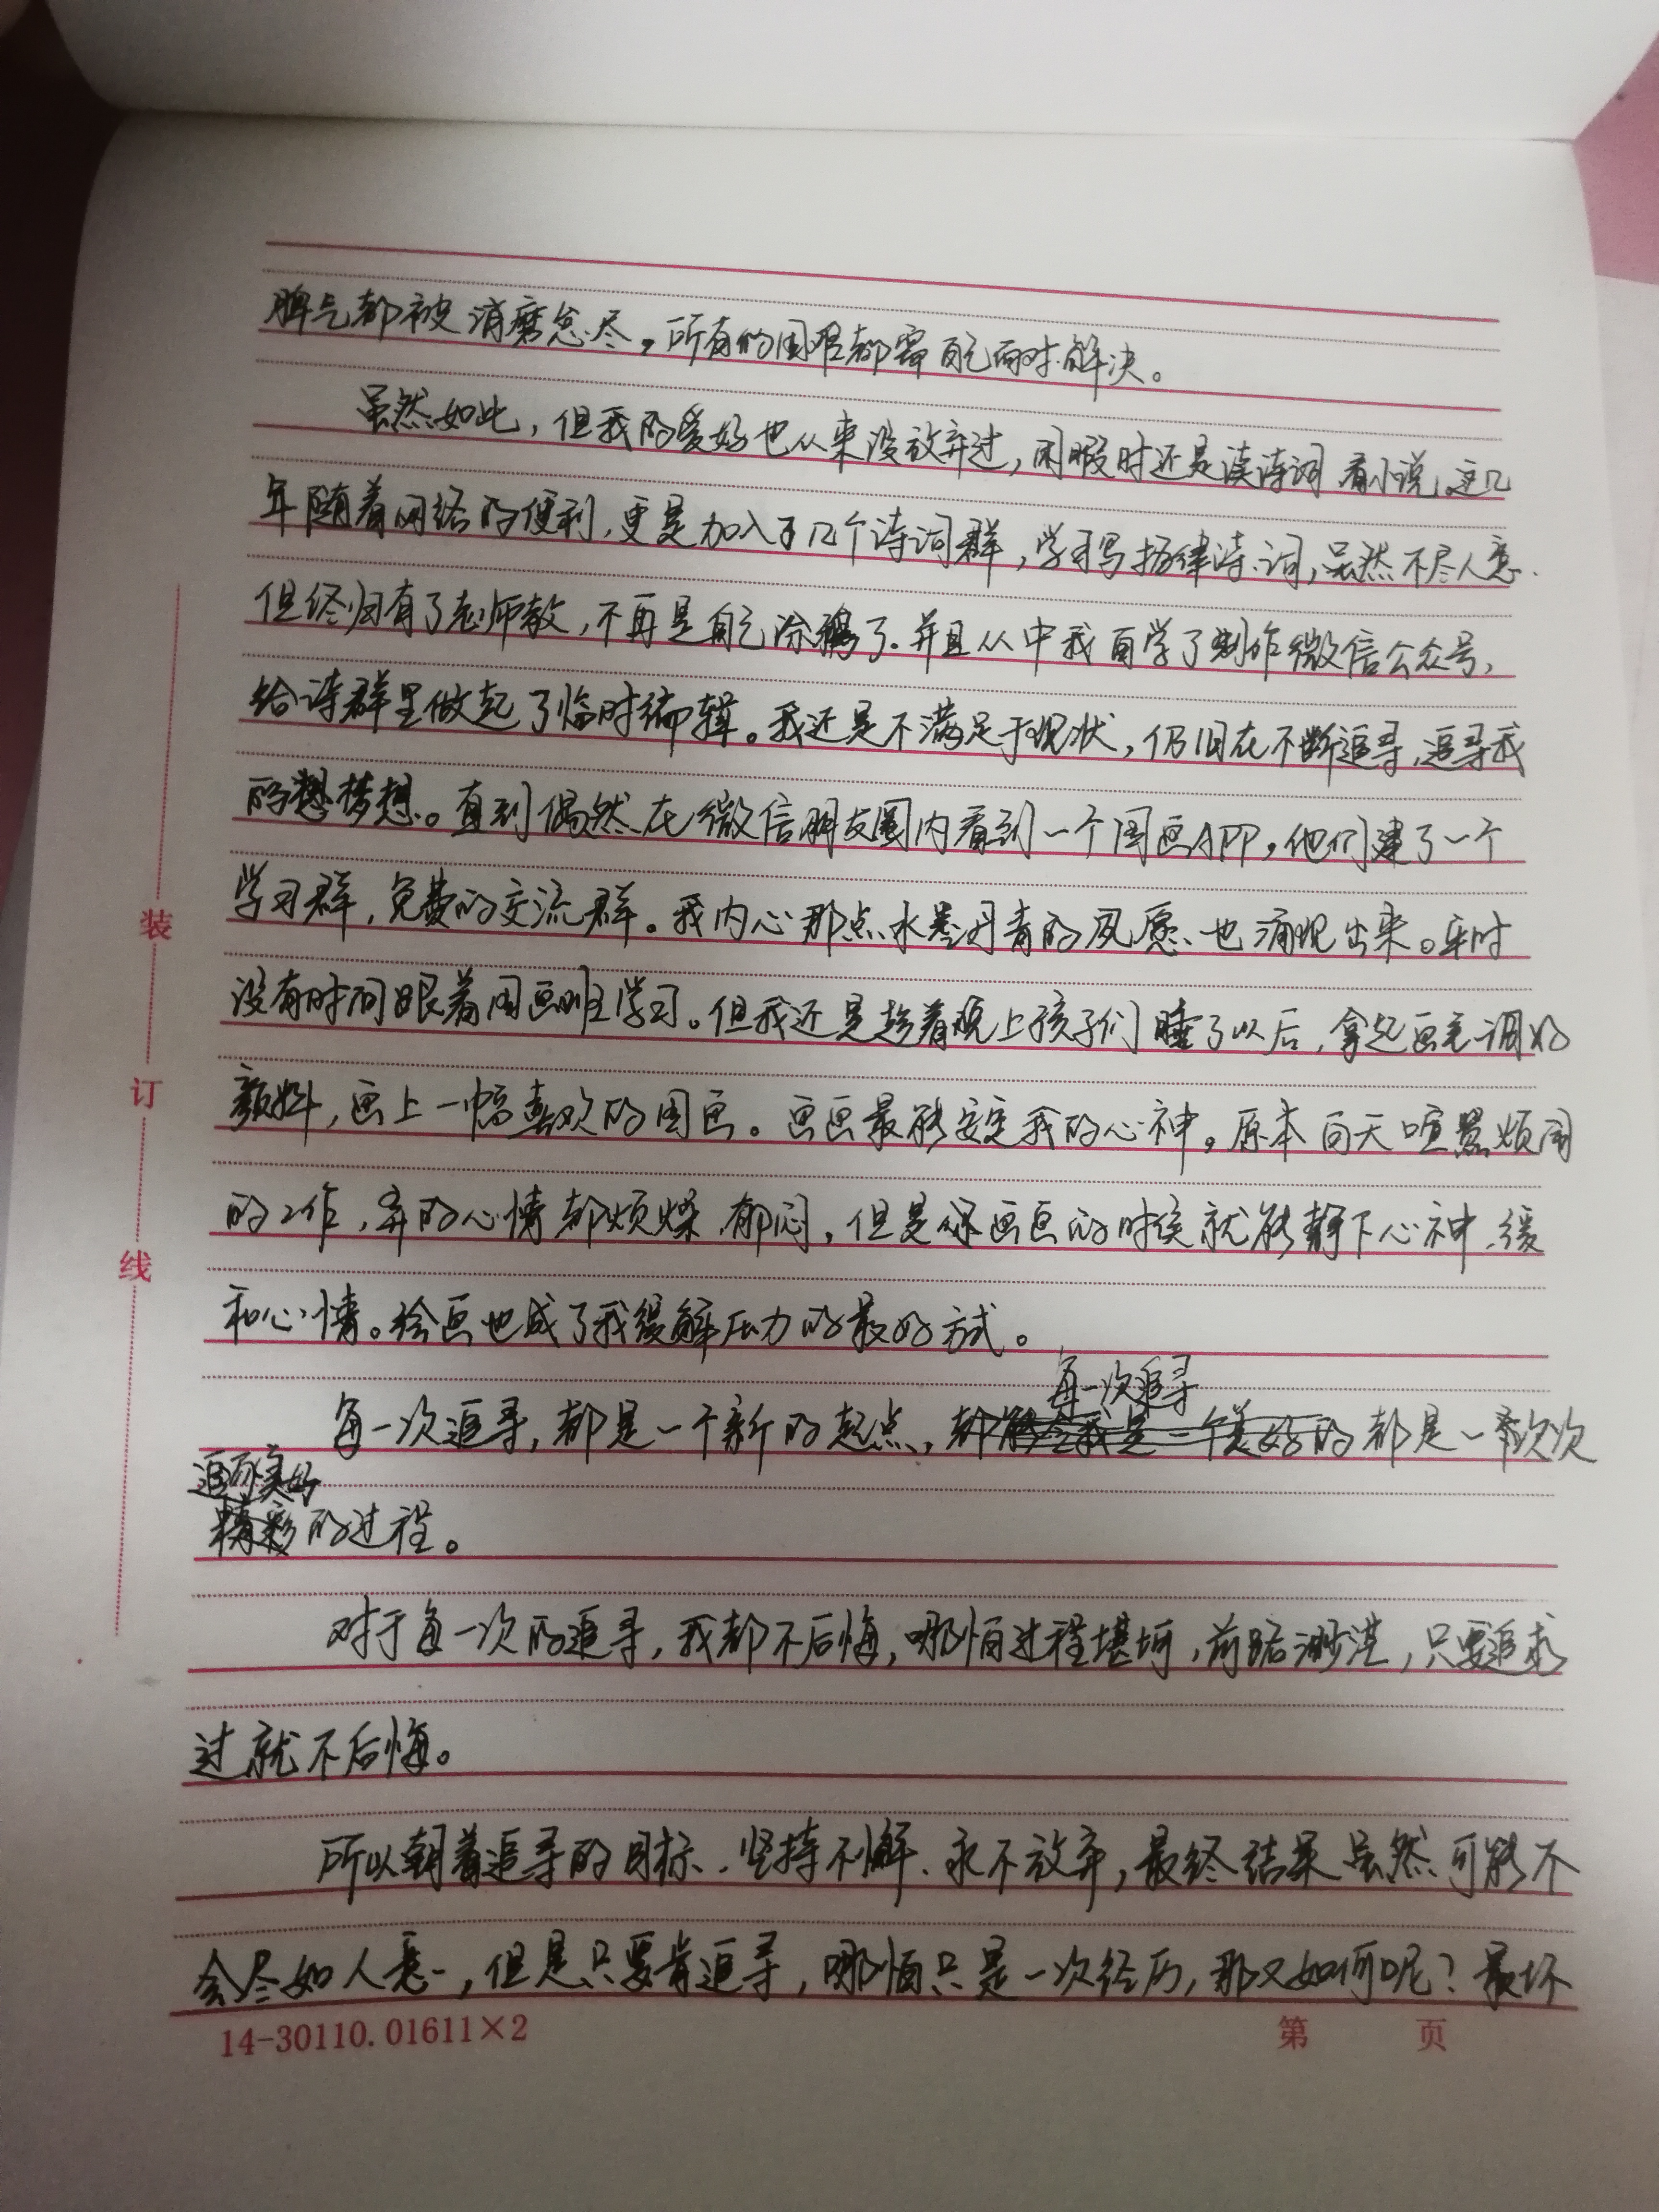 脾气都被消磨怠尽。所有的困难都需自己面对解决。
虽然如此，但我的爱好也从来没放弃过，闲暇时还是读诗词看小说。这几
年随着网络的便利，更是加入了几个诗词群，学习写格律诗词，虽然不尽人意.
但终归有了老师教，不再是自己涂鸦了.并且从中我自学了制作微信公众号，
给诗群里做起了临时编辑。我还是不满足于现状，仍旧在不断追寻，追寻我
的梦想。直到偶然在微信朋友圈内看到一个国画APP，他们建了一个
学习群，免费的交流群。我内心那点水墨丹青的夙愿也涌现出来。平时
没有时间跟着国画班学习。但我还是趁着晚上孩子们睡了以后，拿起画笔调好
颜料，画上一幅喜欢的国画。画画最能安定我的心神。原本白天喧嚣烦闷
的工作，弄的心情都烦燥郁闷，但是在画画的时侯就能静下心神，缓
和心情。绘画也成了我缓解压力的最好方式。
每一次追寻
每一次追寻，都是一个新的起点，都是一次次
追逐美好
的过程。
对于每一次的追寻，我都不后悔，哪怕过程堪坷，前路渺茫，只要追求
过就不后悔。
所以朝着追寻的目标、坚持不懈、永不放弃，最终结果虽然可能不
会尽如人意，但是只要肯追寻，哪怕只是一次经历，那又如何呢？最坏
装
订
线
14-30110.01611×2
第 页